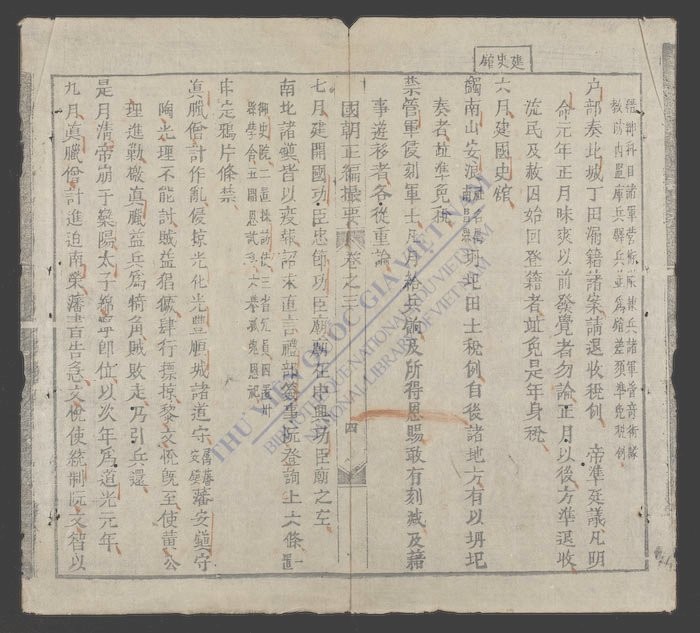 建史館
戶部奏北城丁田漏籍諸案請退收稅例 帝準廷議凡明
命元年正月昧爽以前發覺者勿論正月以後方準退收
流民及赦囚始回登籍者並免是年身稅
六月建國史館
蠲南山安浪坍圯田土稅例自後諸地方有以坍圯
奏者並準免稅
禁管軍侵刻軍士凡月給兵餉及所得恩賜敢有刻減及藉
事遊移者各從重論
國朝正編撮要 卷之三 四
七月建開國功臣忠節功臣廟廟在中興功臣廟之左
南北諸鎮皆以疫報詔求直言禮部簽事阮登詢上六條
申定鴉片條禁
眞臘僧計作亂侵掠光化光豐順城諸道守藩安鎮守
陶光理不能討賊益猖獗肆行摽掠黎文悅旣至使黃公
理進勦檄眞臘益兵爲犄角賊敗走乃引兵還
是月清帝崩于欒陽太子綿寧卽位以次年爲道光元年
九月眞臘僧計進迫南榮藩書告急文悅使統制阮文智以
THƯ VIỆN QUỐC GIA VIỆT NAM
BIBLIOTHÈQUE NATIONALE DU VIETNAM
NATIONAL LIBRARY OF VIETNAM